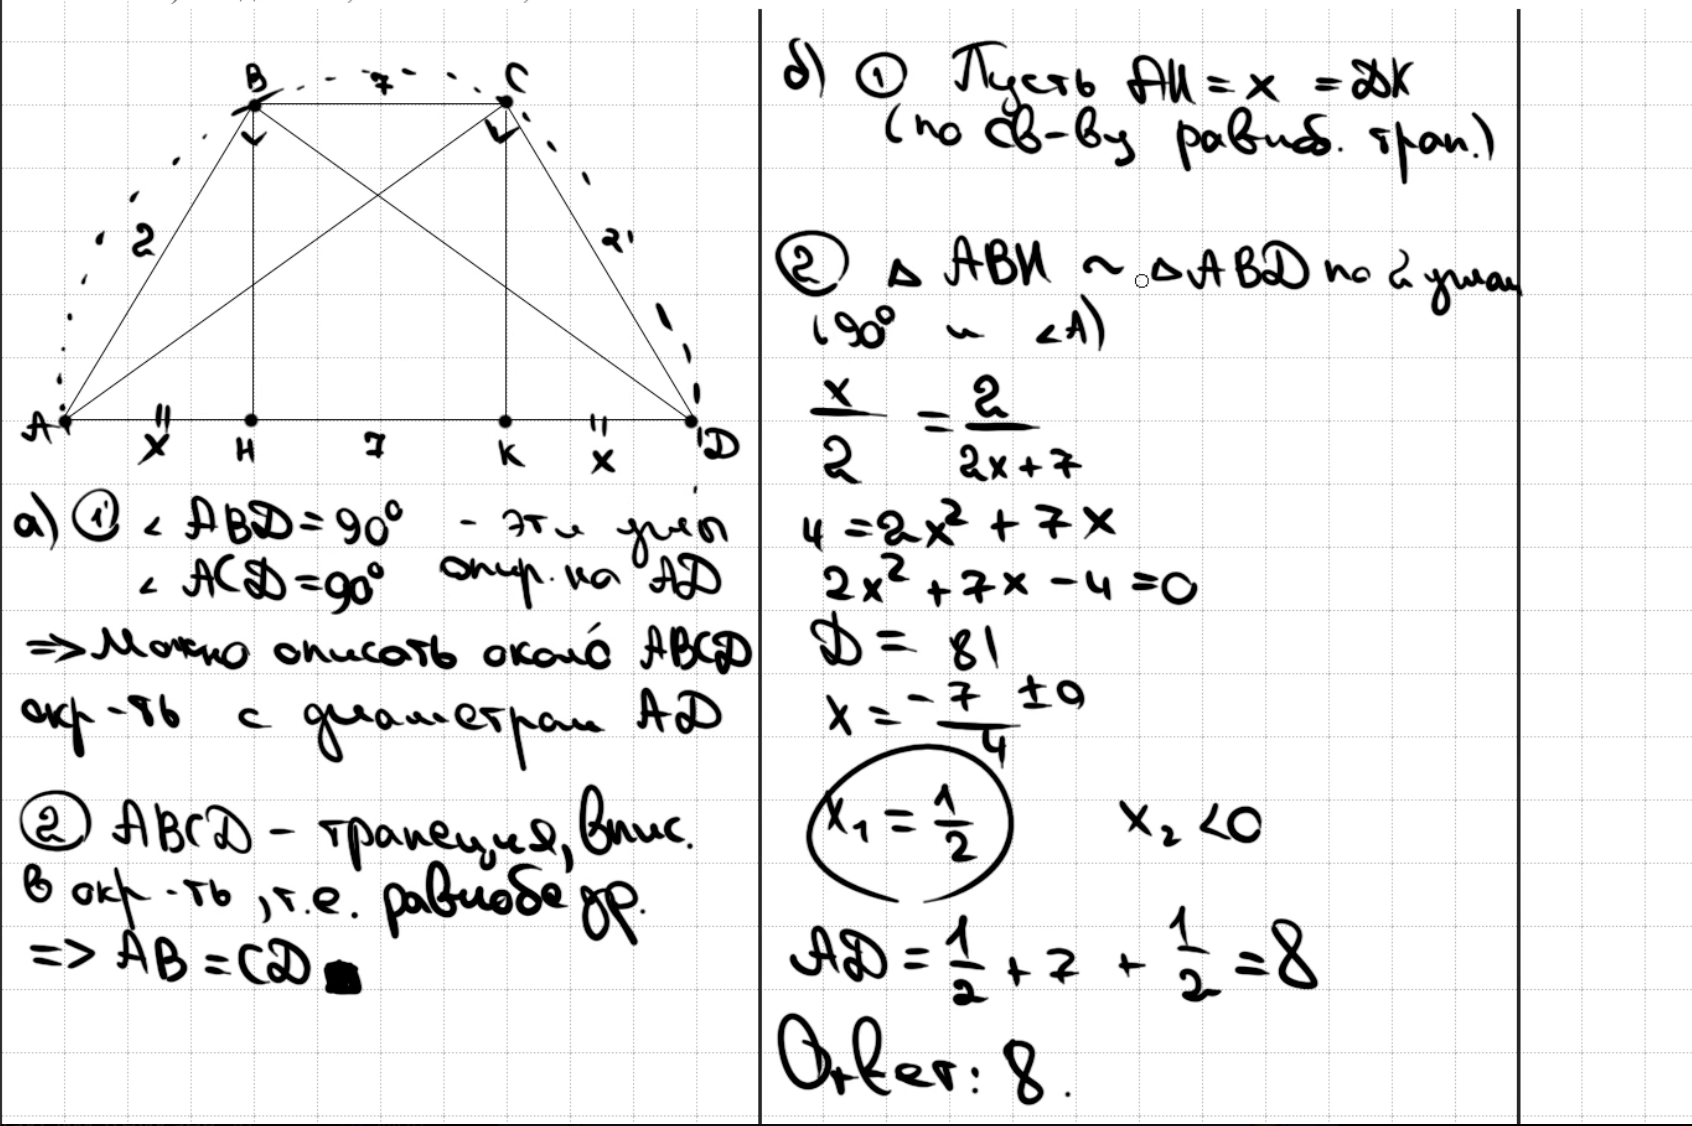 B 7 C
2 2
A x H 7 K x D
а) ① ∠ ABD = 90° - эти углы
∠ ACD = 90° опир. на AD
=> Можно описать около ABCD
окр-ть с диаметром AD
② ABCD - трапеция, впис.
в окр-ть, т.е. равнобедр.
=> AB = CD ■
б) ① Пусть AH = x = DK
(по св-ву равноб. трап.)
② △ ABH ~ △ABD по 2 углам
(90° и ∠A)
x/2 = 2/(2x+7)
4 = 2x² + 7x
2x² + 7x - 4 = 0
D = 81
x = (-7 ± 9)/4
x₁ = 1/2 x₂ < 0
AD = 1/2 + 7 + 1/2 = 8
Ответ: 8.